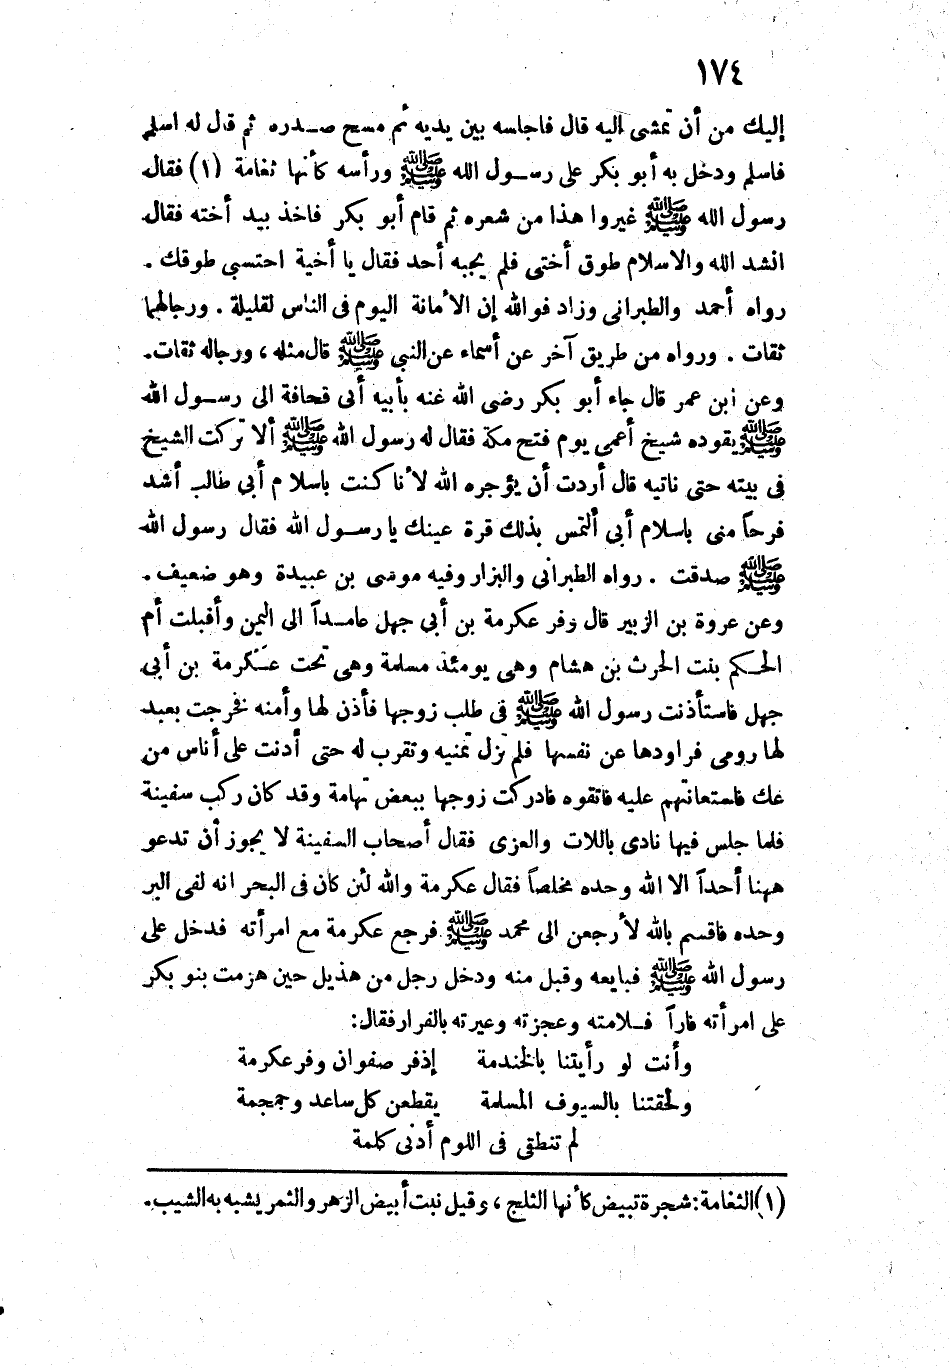 ١٧٤
إليك من أن تمشى اليه قال فاجلسه بين يديه ثم مسح صدره ثم قال له اسلم
فاسلم ودخل به أبو بكر على رسول الله ﷺ ورأسه كأنها ثغامة (١) فقال
رسول الله ﷺ غيروا هذا من شعره ثم قام أبو بكر فاخذ بيد أخته فقال
انشد الله والاسلام طوق أختى فلم يجبه أحد فقال يا أخية احتسبى طوقك .
رواه أحمد والطبرانى وزاد فوالله إن الأمانة اليوم فى الناس لقليلة . ورجالهما
ثقات . ورواه من طريق آخر عن أسماء عن النبي ﷺ قال مثله ، ورجاله ثقات .
وعن ابن عمر قال جاء أبو بكر رضى الله عنه بأبيه أبى قحافة الى رسول الله
ﷺ يقوده شيخ أعمى يوم فتح مكة فقال له رسول الله ﷺ ألا تركت الشيخ
فى بيته حتى ناتيه قال أردت أن يؤجره الله لأنا كنت باسلام أبى طالب أشد
فرحاً منى باسلام أبى ألتمس بذلك قرة عينك يا رسول الله فقال رسول الله
ﷺ صدقت . رواه الطبرانى والبزار وفيه موسى بن عبيدة وهو ضعيف .
وعن عروة بن الزبير قال وفر عكرمة بن أبى جهل عامداً الى اليمن وأقبلت أم
الحكم بنت الحرث بن هشام وهى يومئذ مسلمة وهى تحت عكرمة بن أبى
جهل فاستأذنت رسول الله ﷺ فى طلب زوجها فأذن لها وأمنه فخرجت بعبد
لها رومى فراودها عن نفسها فلم تزل تمنيه وتقرب له حتى أدنت على أناس من
عك فاستعانتهم عليه فاثقوه فادركت زوجها ببعض تهامة وقد كان ركب سفينة
فلما جلس فيها نادى باللات والعزى فقال أصحاب السفينة لا يجوز أن تدعو
ههنا أحداً الا الله وحده مخلصاً فقال عكرمة والله لئن كان فى البحر انه لفى البر
وحده فاقسم بالله لأرجعن الى محمد ﷺ فرجع عكرمة مع امرأته فدخل على
رسول الله ﷺ فبايعه وقبل منه ودخل رجل من هذيل حين هزمت بنو بكر
على امرأته فاراً فلامته وعجزته وعيرته بالفرار فقال:
وأنت لو رأيتنا بالخندمة إذ فر صفوان وفر عكرمة
ولحقتنا بالسيوف المسلمة يقطعن كل ساعد وجمجمة
لم تنطقى فى اللوم أدنى كلمة
(١) الثغامة: شجرة تبيض كأنها الثلج ، وقيل نبت أبيض الزهر والثمر يشبه به الشيب.